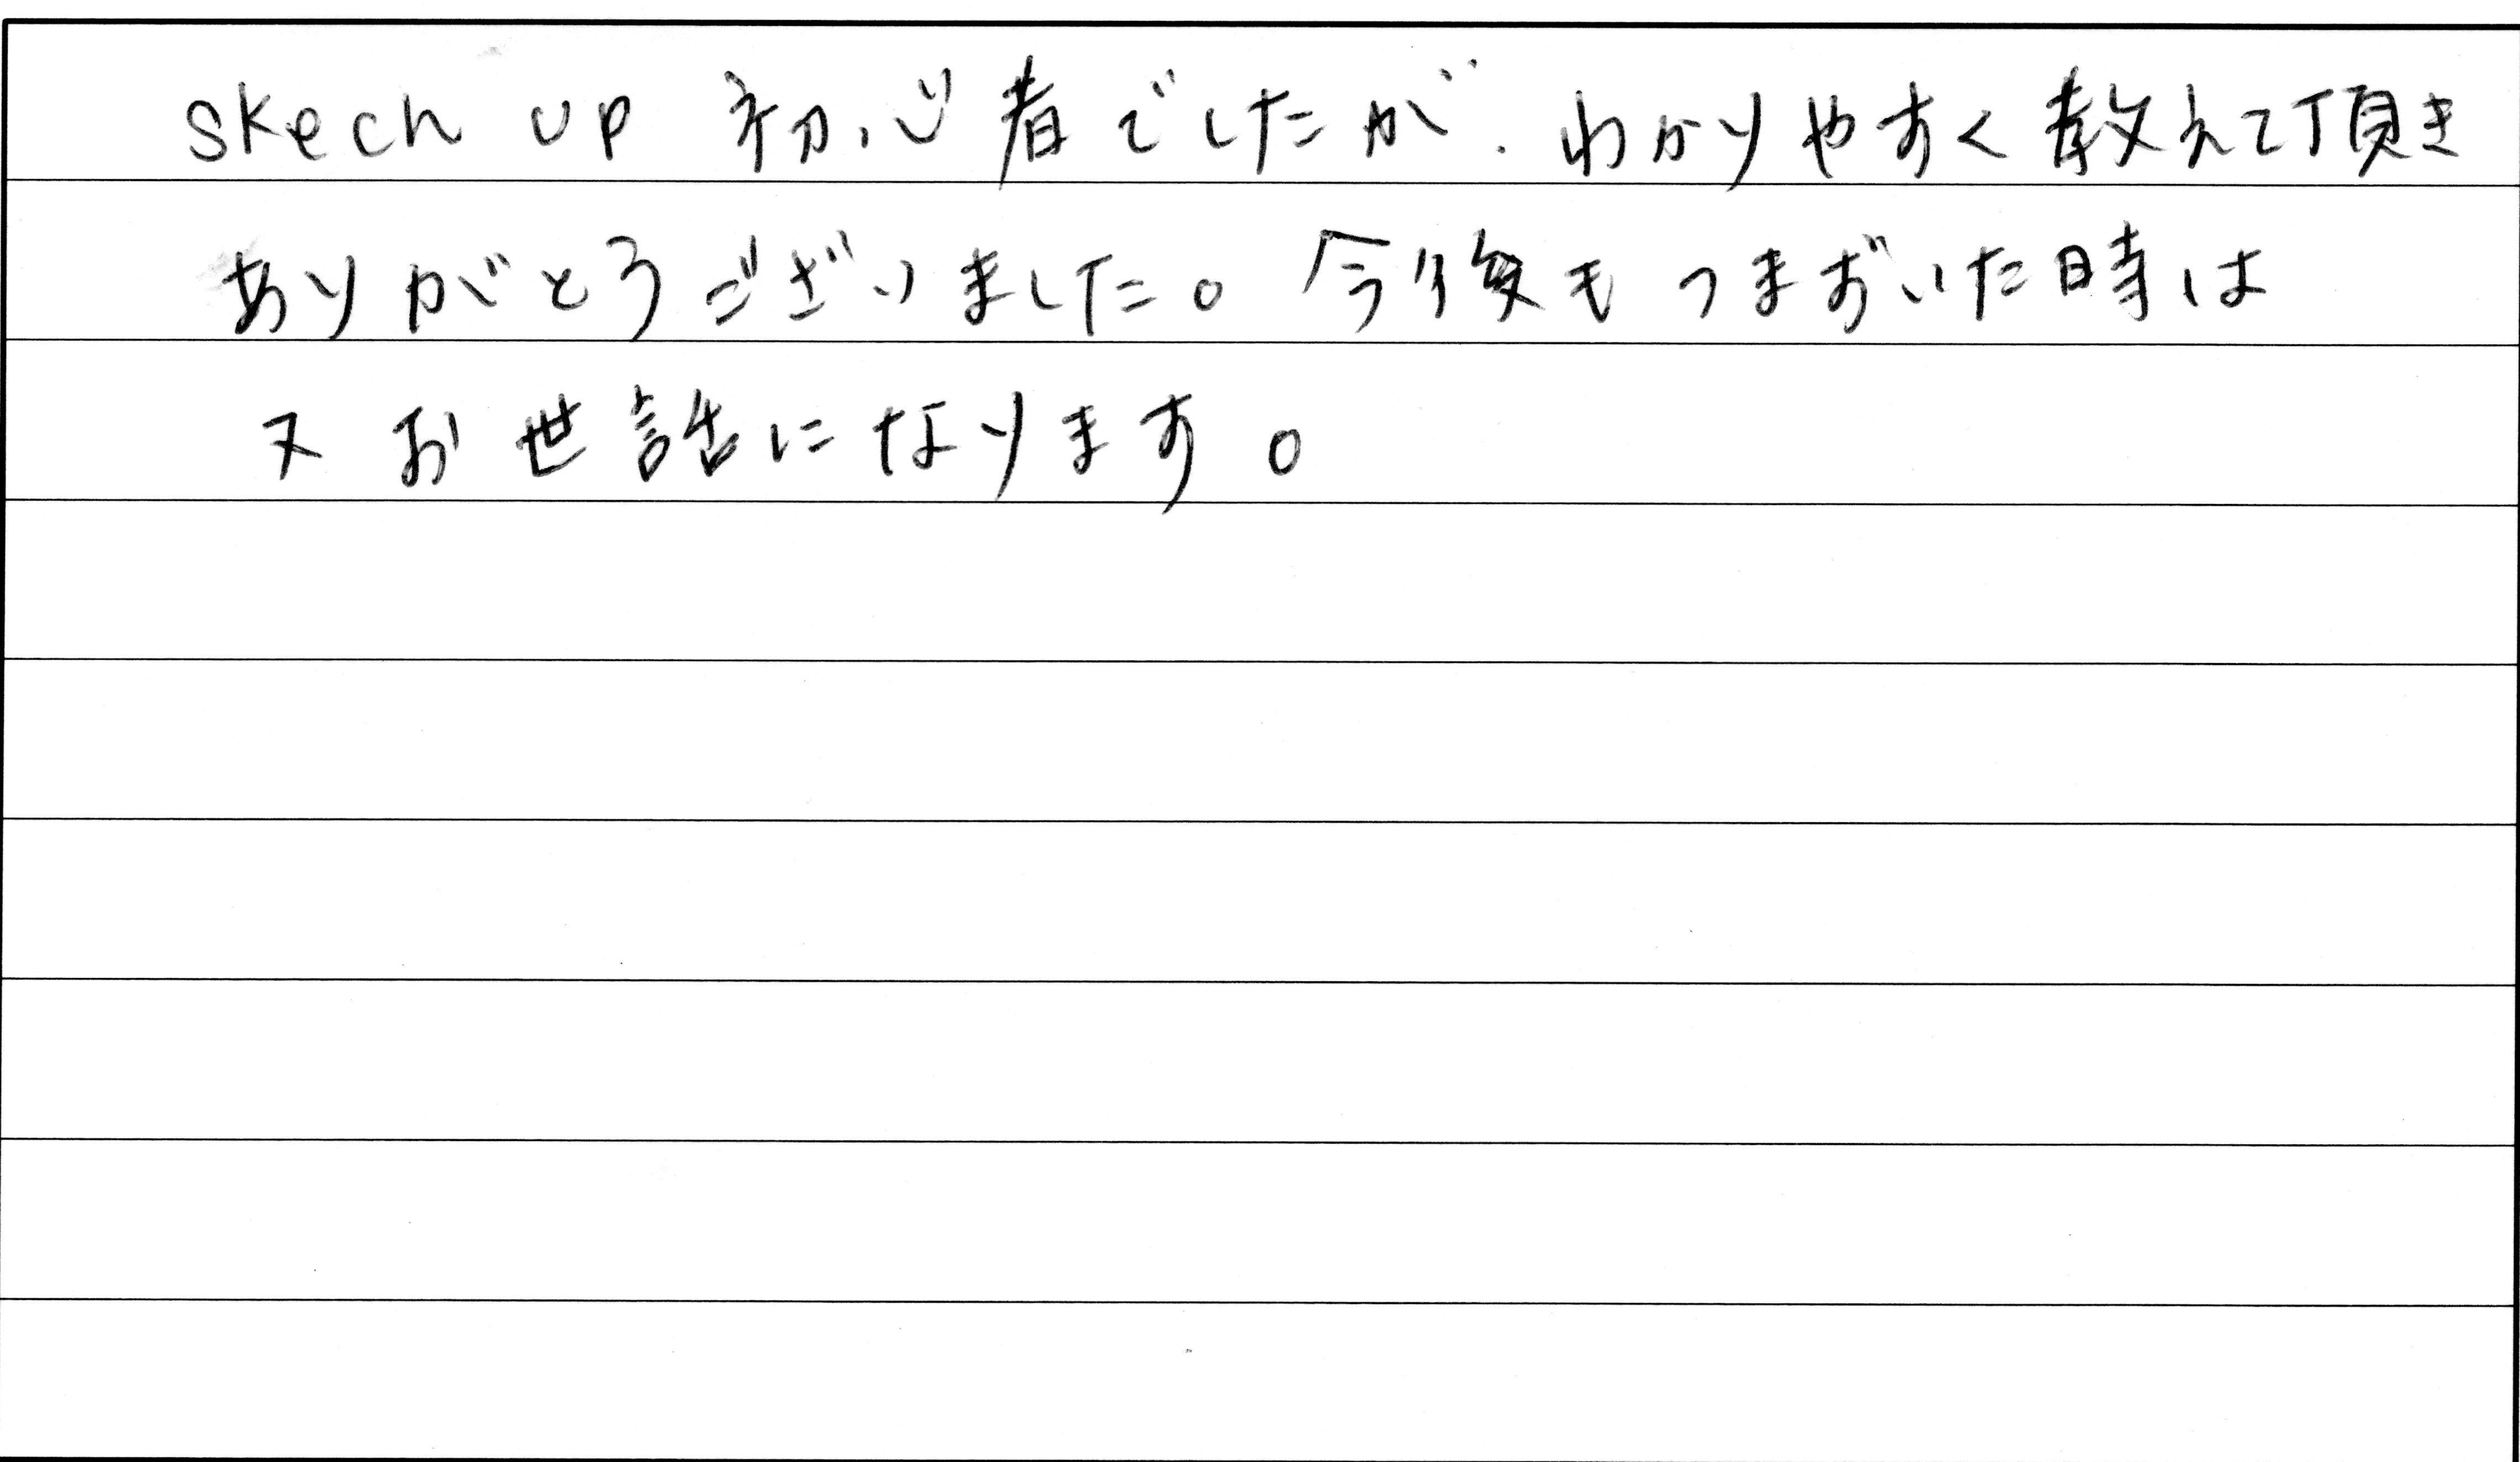 skech up 初心者でしたが、わかりやすく教えて頂き
ありがとうございました。今後もつまずいた時は
又お世話になります。